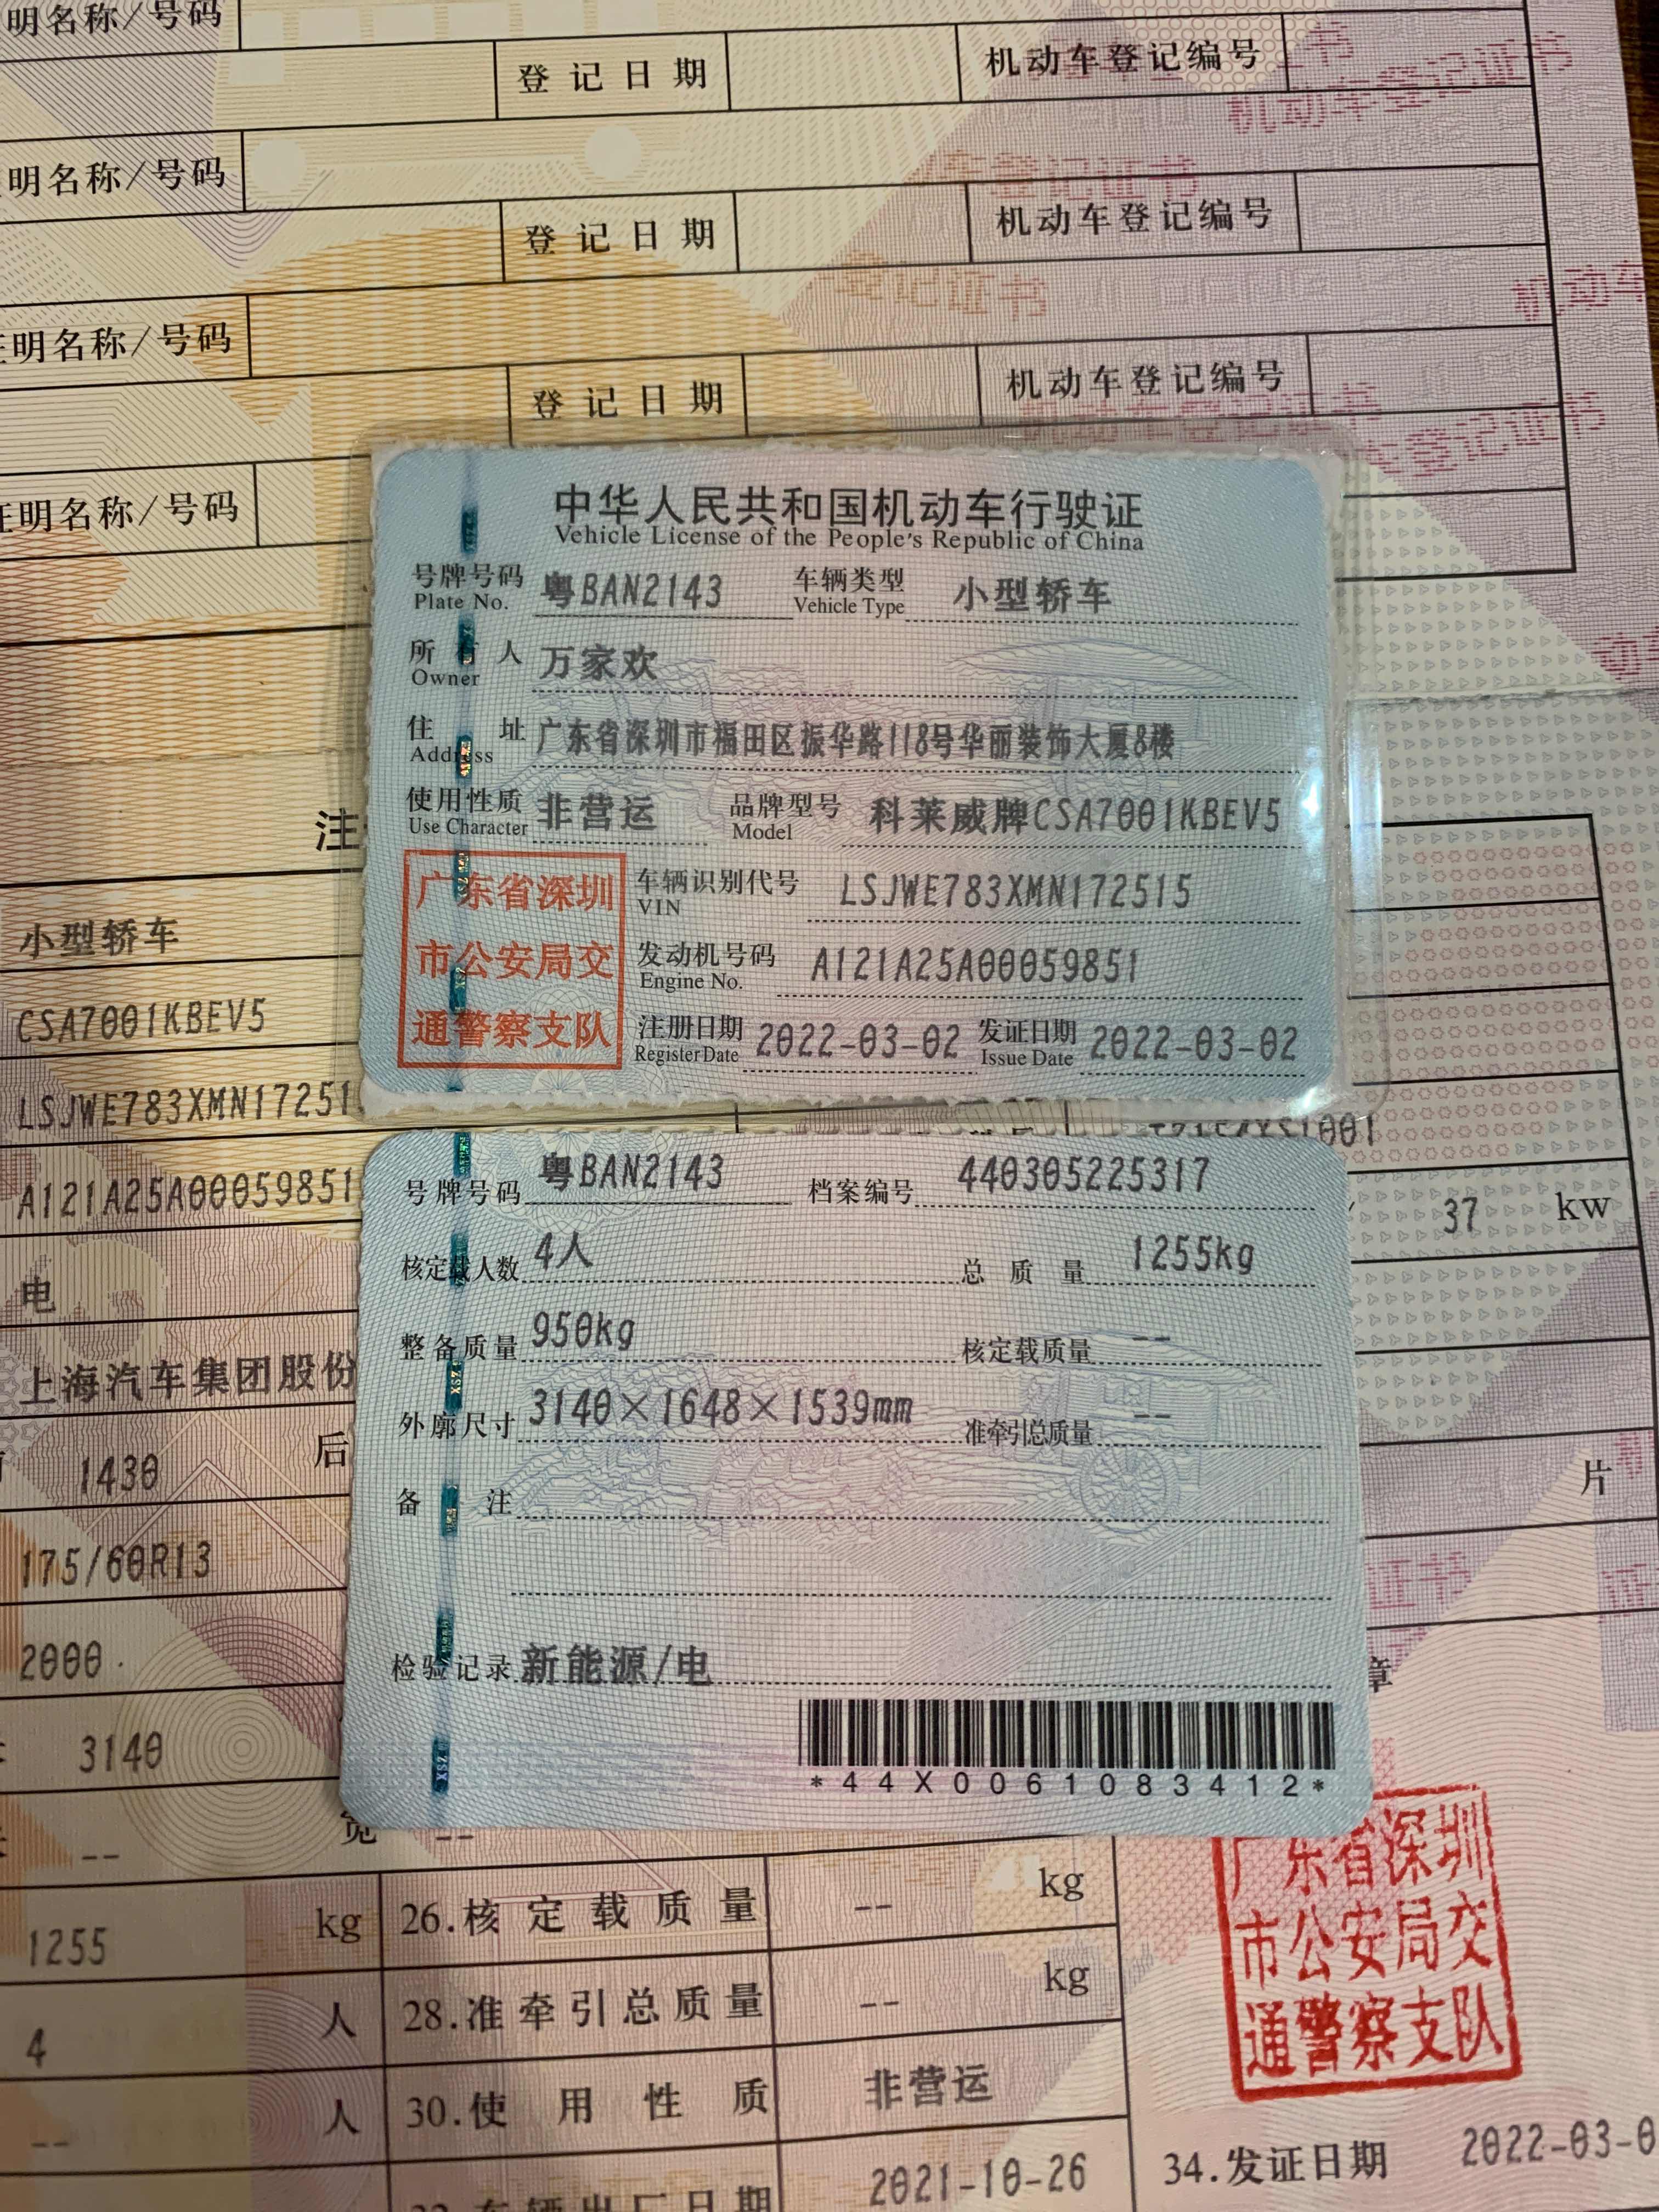 明名称/号码
登记日期 机动车登记编号
明名称/号码
登记日期 机动车登记编号
证明名称/号码
登记日期 机动车登记编号
证明名称/号码
中华人民共和国机动车行驶证
Vehicle License of the People's Republic of China
号牌号码 粤BAN2143 车辆类型 小型轿车
Plate No. Vehicle Type
所有人 万家欢
Owner
住址 广东省深圳市福田区振华路118号华丽装饰大厦8楼
Address
使用性质 非营运 品牌型号 科莱威牌CSA7001KBEV5
Use Character Model
广东省深圳
市公安局交
通警察支队
车辆识别代号 LSJWE783XMN172515
VIN
发动机号码 A121A25A00059851
Engine No.
注册日期 2022-03-02 发证日期 2022-03-02
Register Date Issue Date
号牌号码 粤BAN2143 档案编号 440305225317
核定载人数 4人 总质量 1255kg
整备质量 950kg 核定载质量 --
外廓尺寸 3140×1648×1539mm 准牵引总质量 --
备注
检验记录 新能源/电
*44X0061083412*
注
小型轿车
CSA7001KBEV5
LSJWE783XMN17251
A121A25A00059851
37 kw
电
上海汽车集团股份
1430 后
片
175/60R13
2000
章
3140
-- 宽 --
1255 kg 26.核定载质量 -- kg
4 人 28.准牵引总质量 -- kg
-- 人 30.使用性质 非营运
32.车辆出厂日期 2021-10-26
广东省深圳
市公安局交
通警察支队
34.发证日期 2022-03-0